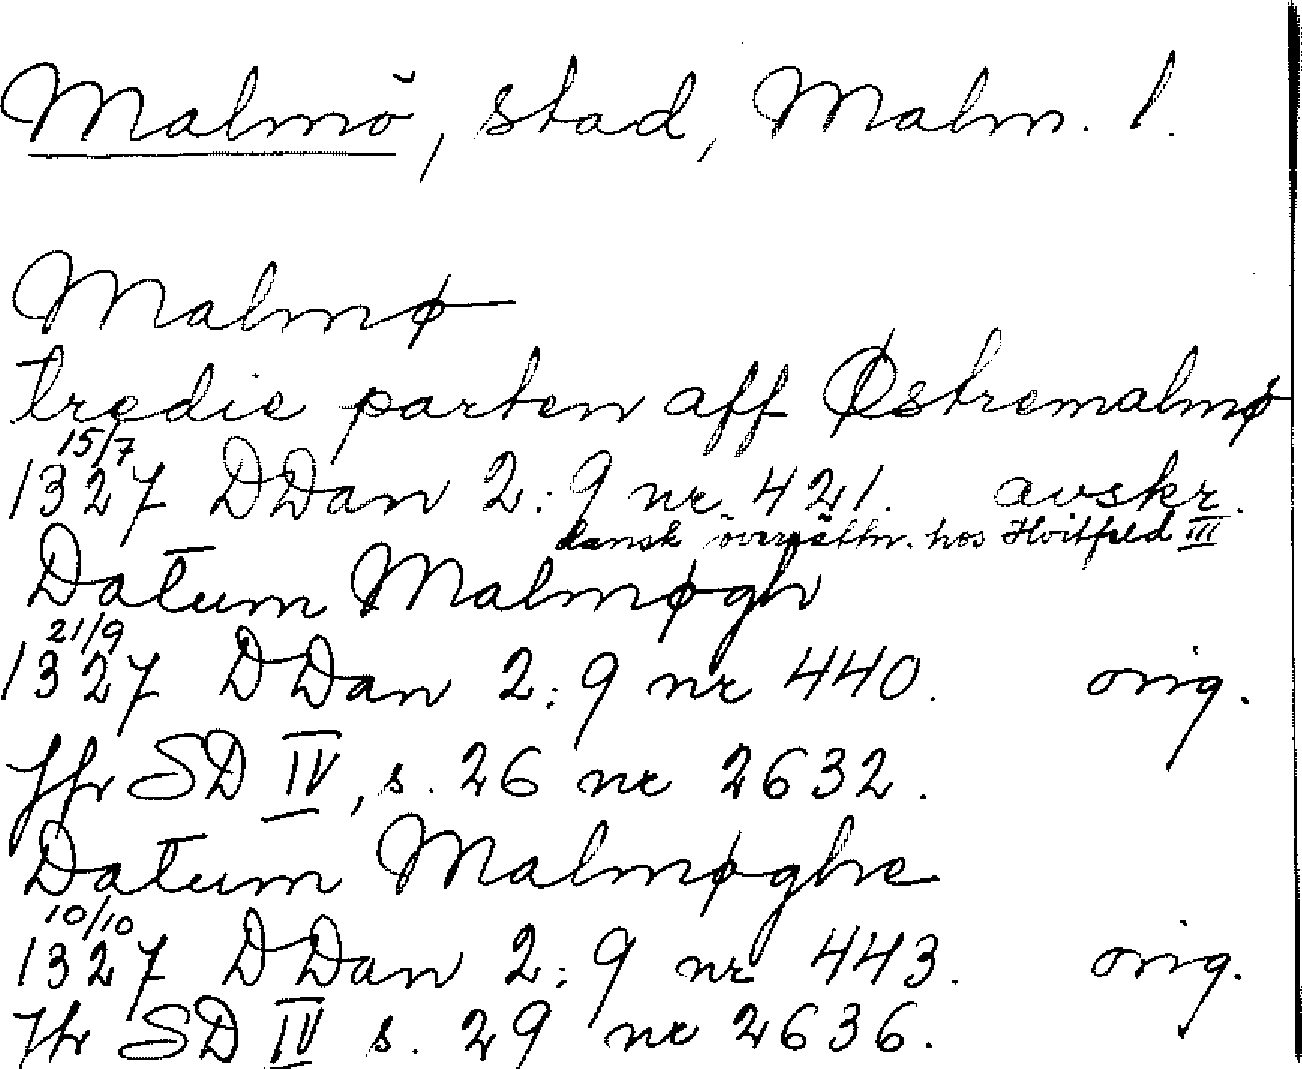 Malmö, stad, Malm. l.
Malmø
tredie parten aff Østremalmø
15/7
1327 DDan 2:9 nr 421. avskr.
dansk översättn. hos Hvitfeld III
Datum Malmøgh
21/9
1327 DDan 2:9 nr 440. orig.
Jfr SD IV, s. 26 nr 2632.
Datum Malmøghe
10/10
1327 DDan 2:9 nr 443. orig.
Jfr SD IV s. 29 nr 2636.